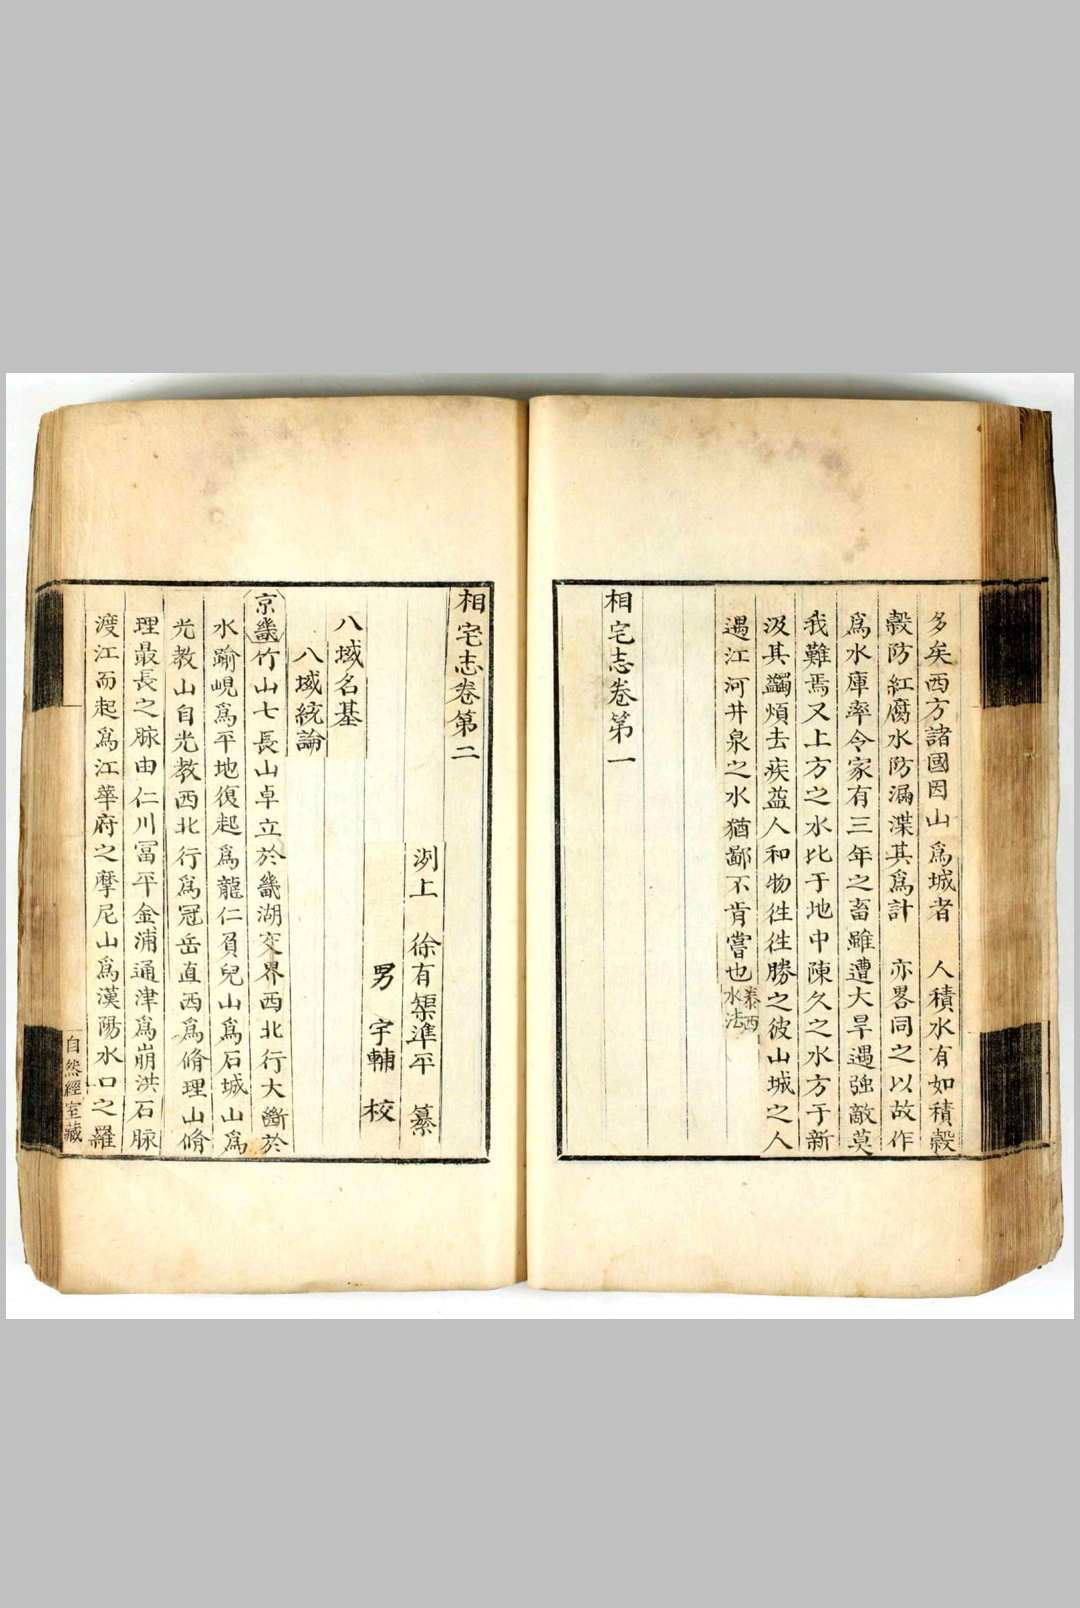 多矣西方諸國因山爲城者 人積水有如積穀
穀防紅腐水防漏渫其爲計 亦畧同之以故作
爲水庫率令家有三年之畜雖遭大旱遇強敵莫
我難焉又上方之水比于地中陳久之水方于新
汲其蠲煩去疾益人和物徃徃勝之彼山城之人
遇江河井泉之水猶鄙不肯嘗也泰西
水法
相宅志卷第一
相宅志卷第二
洌上 徐有榘準平 纂
男 宇輔 校
八域名基
八域統論
京畿竹山七長山卓立於畿湖交界西北行大斷於
水踰峴爲平地復起爲龍仁負兒山爲石城山爲
光教山自光教西北行爲冠岳直西爲脩理山脩
理最長之脉由仁川富平金浦通津爲崩洪石脉
渡江而起爲江華府之摩尼山爲漢陽水口之羅
自然經室藏